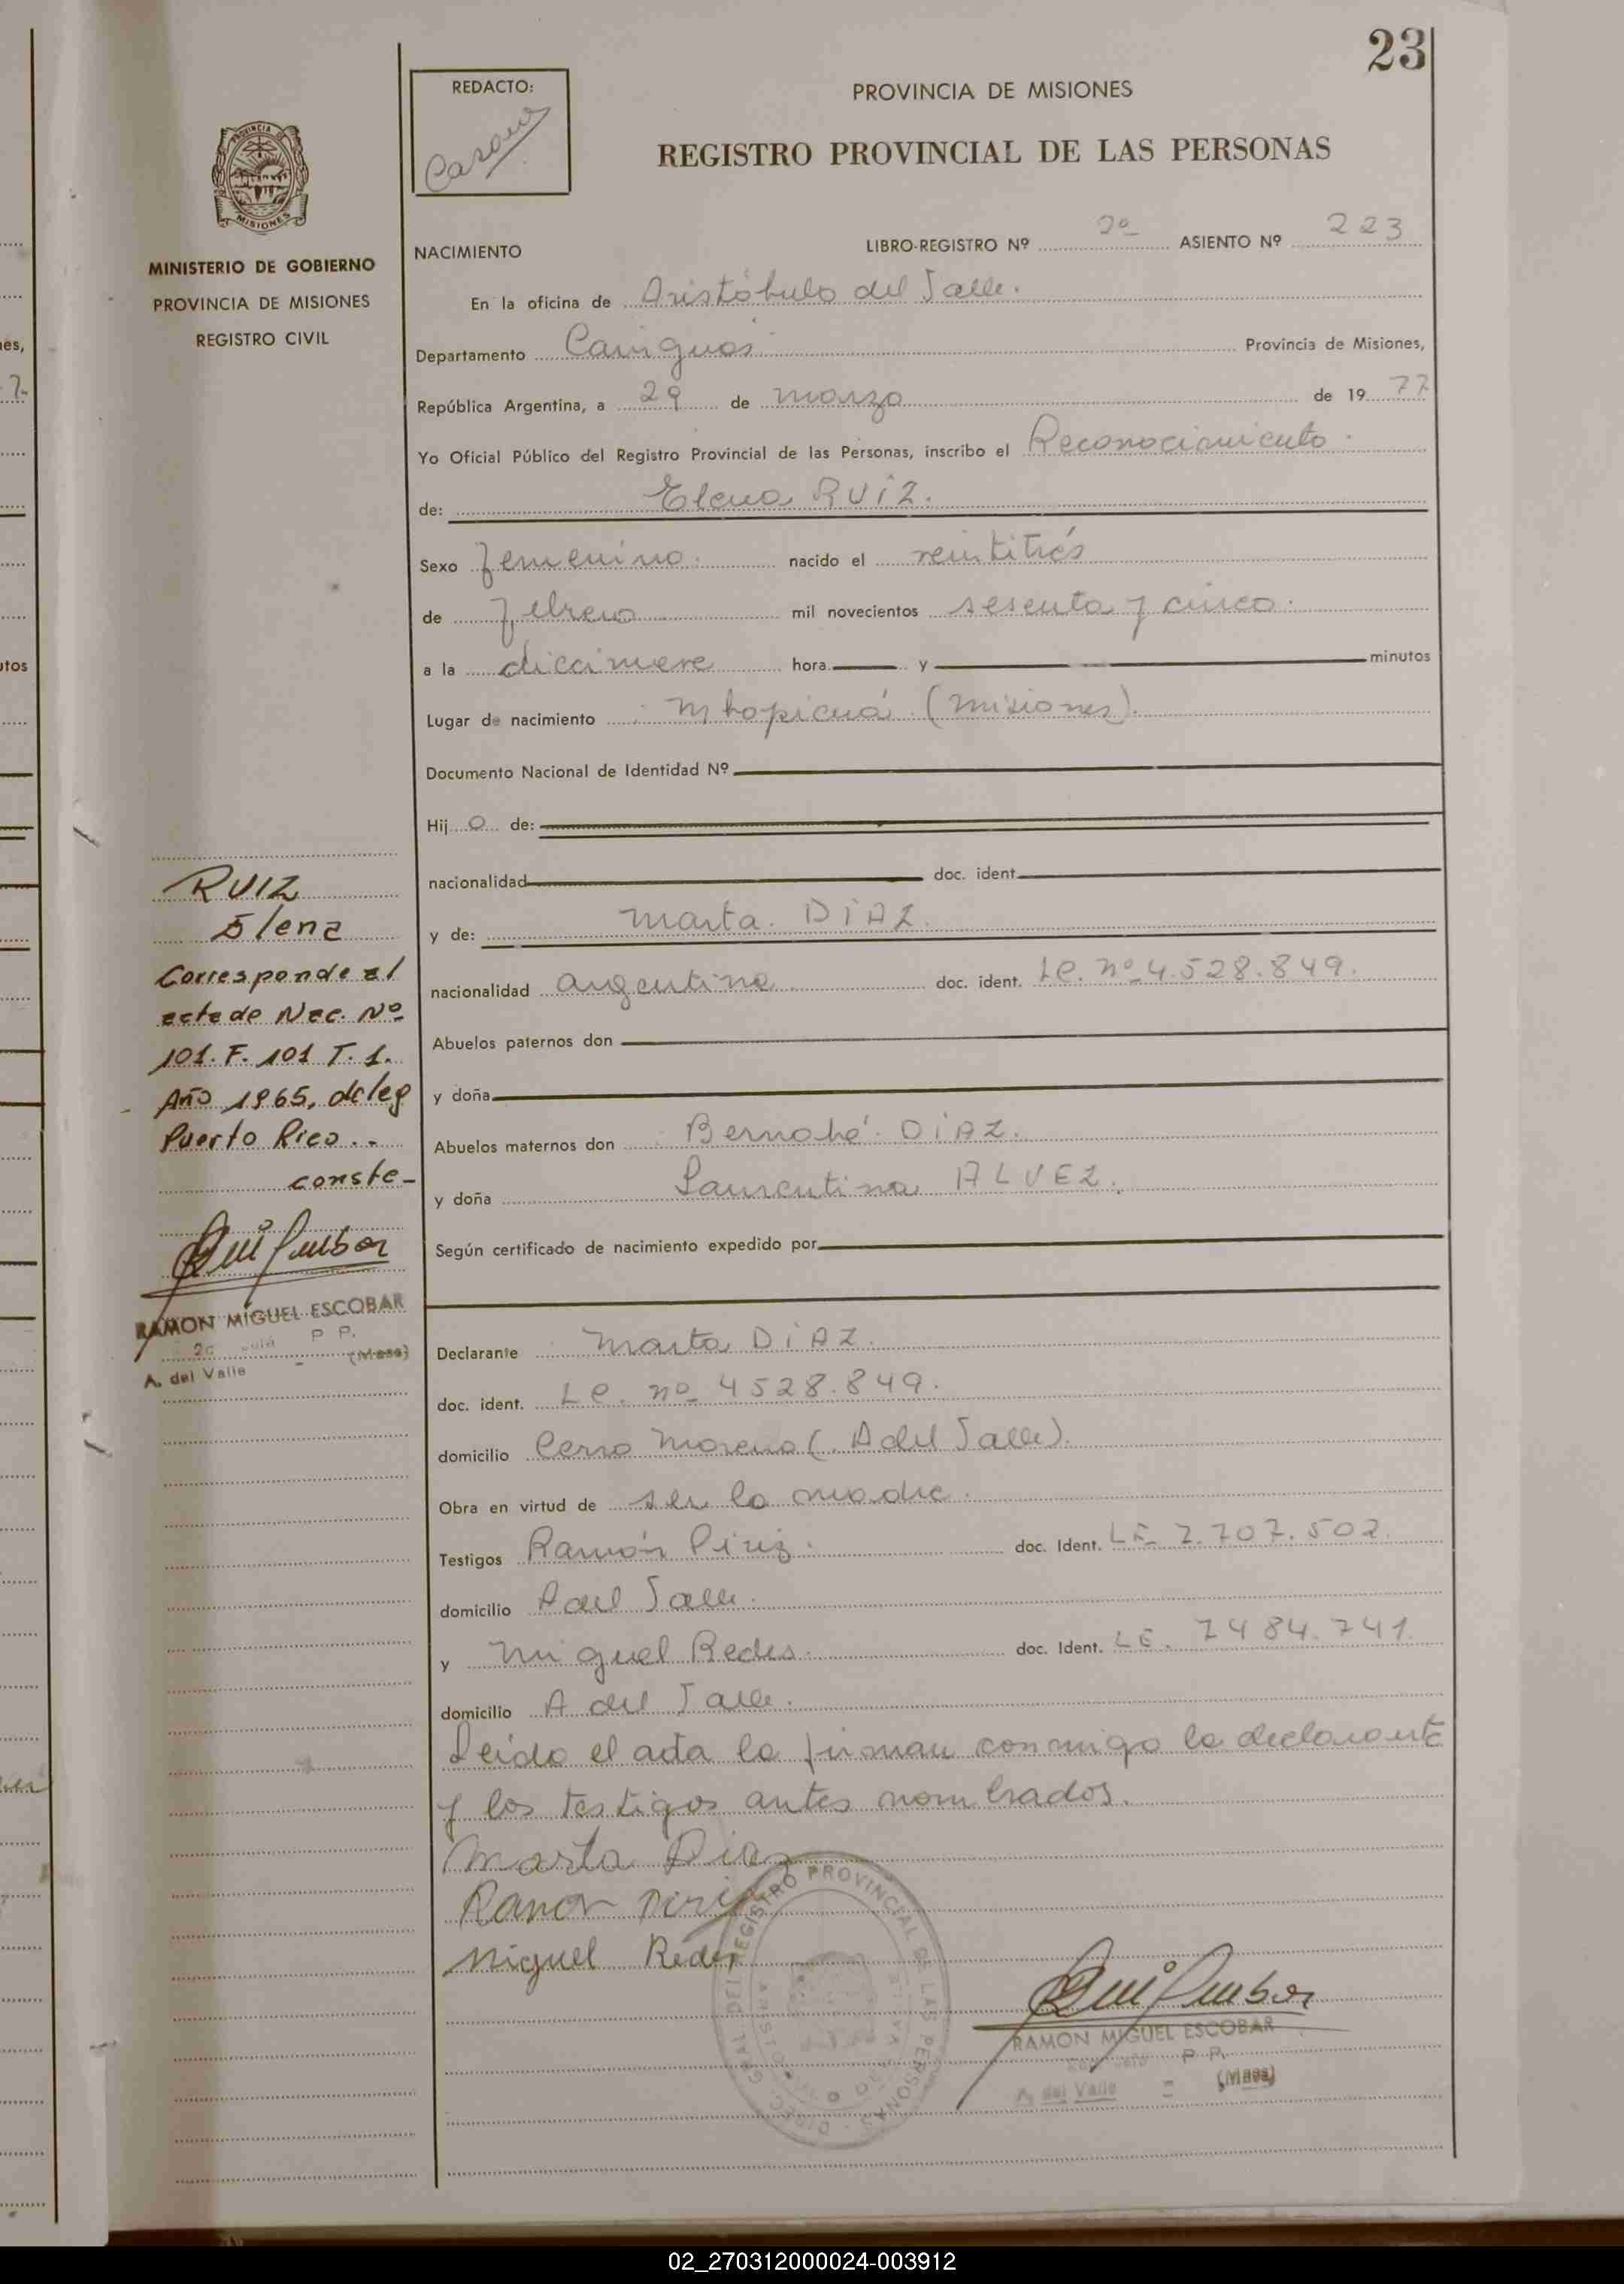 23
REDACTO:
PROVINCIA DE MISIONES
REGISTRO PROVINCIAL DE LAS PERSONAS
PROVINCIA DE
MISIONES
MINISTERIO DE GOBIERNO
PROVINCIA DE MISIONES
REGISTRO CIVIL
NACIMIENTO
LIBRO-REGISTRO Nº 2º ASIENTO Nº 223
En la oficina de Aristóbulo del Valle.
Departamento Cainguás Provincia de Misiones,
República Argentina, a 29 de marzo de 1977
Yo Oficial Público del Registro Provincial de las Personas, inscribo el Reconocimiento
de: Elena RUIZ.
Sexo femenino. nacido el veintitrés
de febrero mil novecientos sesenta y cinco.
a la diecinueve hora y minutos
Lugar de nacimiento Mbopicuá (Misiones).
Documento Nacional de Identidad Nº
Hijo de:
nacionalidad doc. ident.
y de: Marta DIAZ.
nacionalidad argentina doc. ident. LC. nº 4.528.849.
Abuelos paternos don
y doña
Abuelos maternos don Bernabé DIAZ.
y doña Laurentina ALVEZ.
Según certificado de nacimiento expedido por
Declarante Marta DIAZ.
doc. ident. LC. nº 4528.849.
domicilio Cerro Moreno (A del Valle).
Obra en virtud de ser la madre.
Testigos Ramón Piriz. doc. Ident. LE 7.707.502.
domicilio A del Valle.
y Miguel Redes. doc. Ident. LE. 7484.741.
domicilio A del Valle.
Leida el acta la firman conmigo la declarante
y los testigos antes nombrados.
Marta Diaz
Ramon Piriz
Miguel Redes
RAMON MIGUEL ESCOBAR
P P.
A. del Valle (Mnes)
RUIZ
Elena
Corresponde al
acta de Nac. Nº
101. F. 101 T. 1.
Año 1965, deleg
Puerto Rico..
conste-
RAMON MIGUEL ESCOBAR
P P.
A. del Valle (Mnes)
DIRECC. GRAL. DEL REGISTRO PROVINCIAL DE LAS PERSONAS
02_270312000024-003912